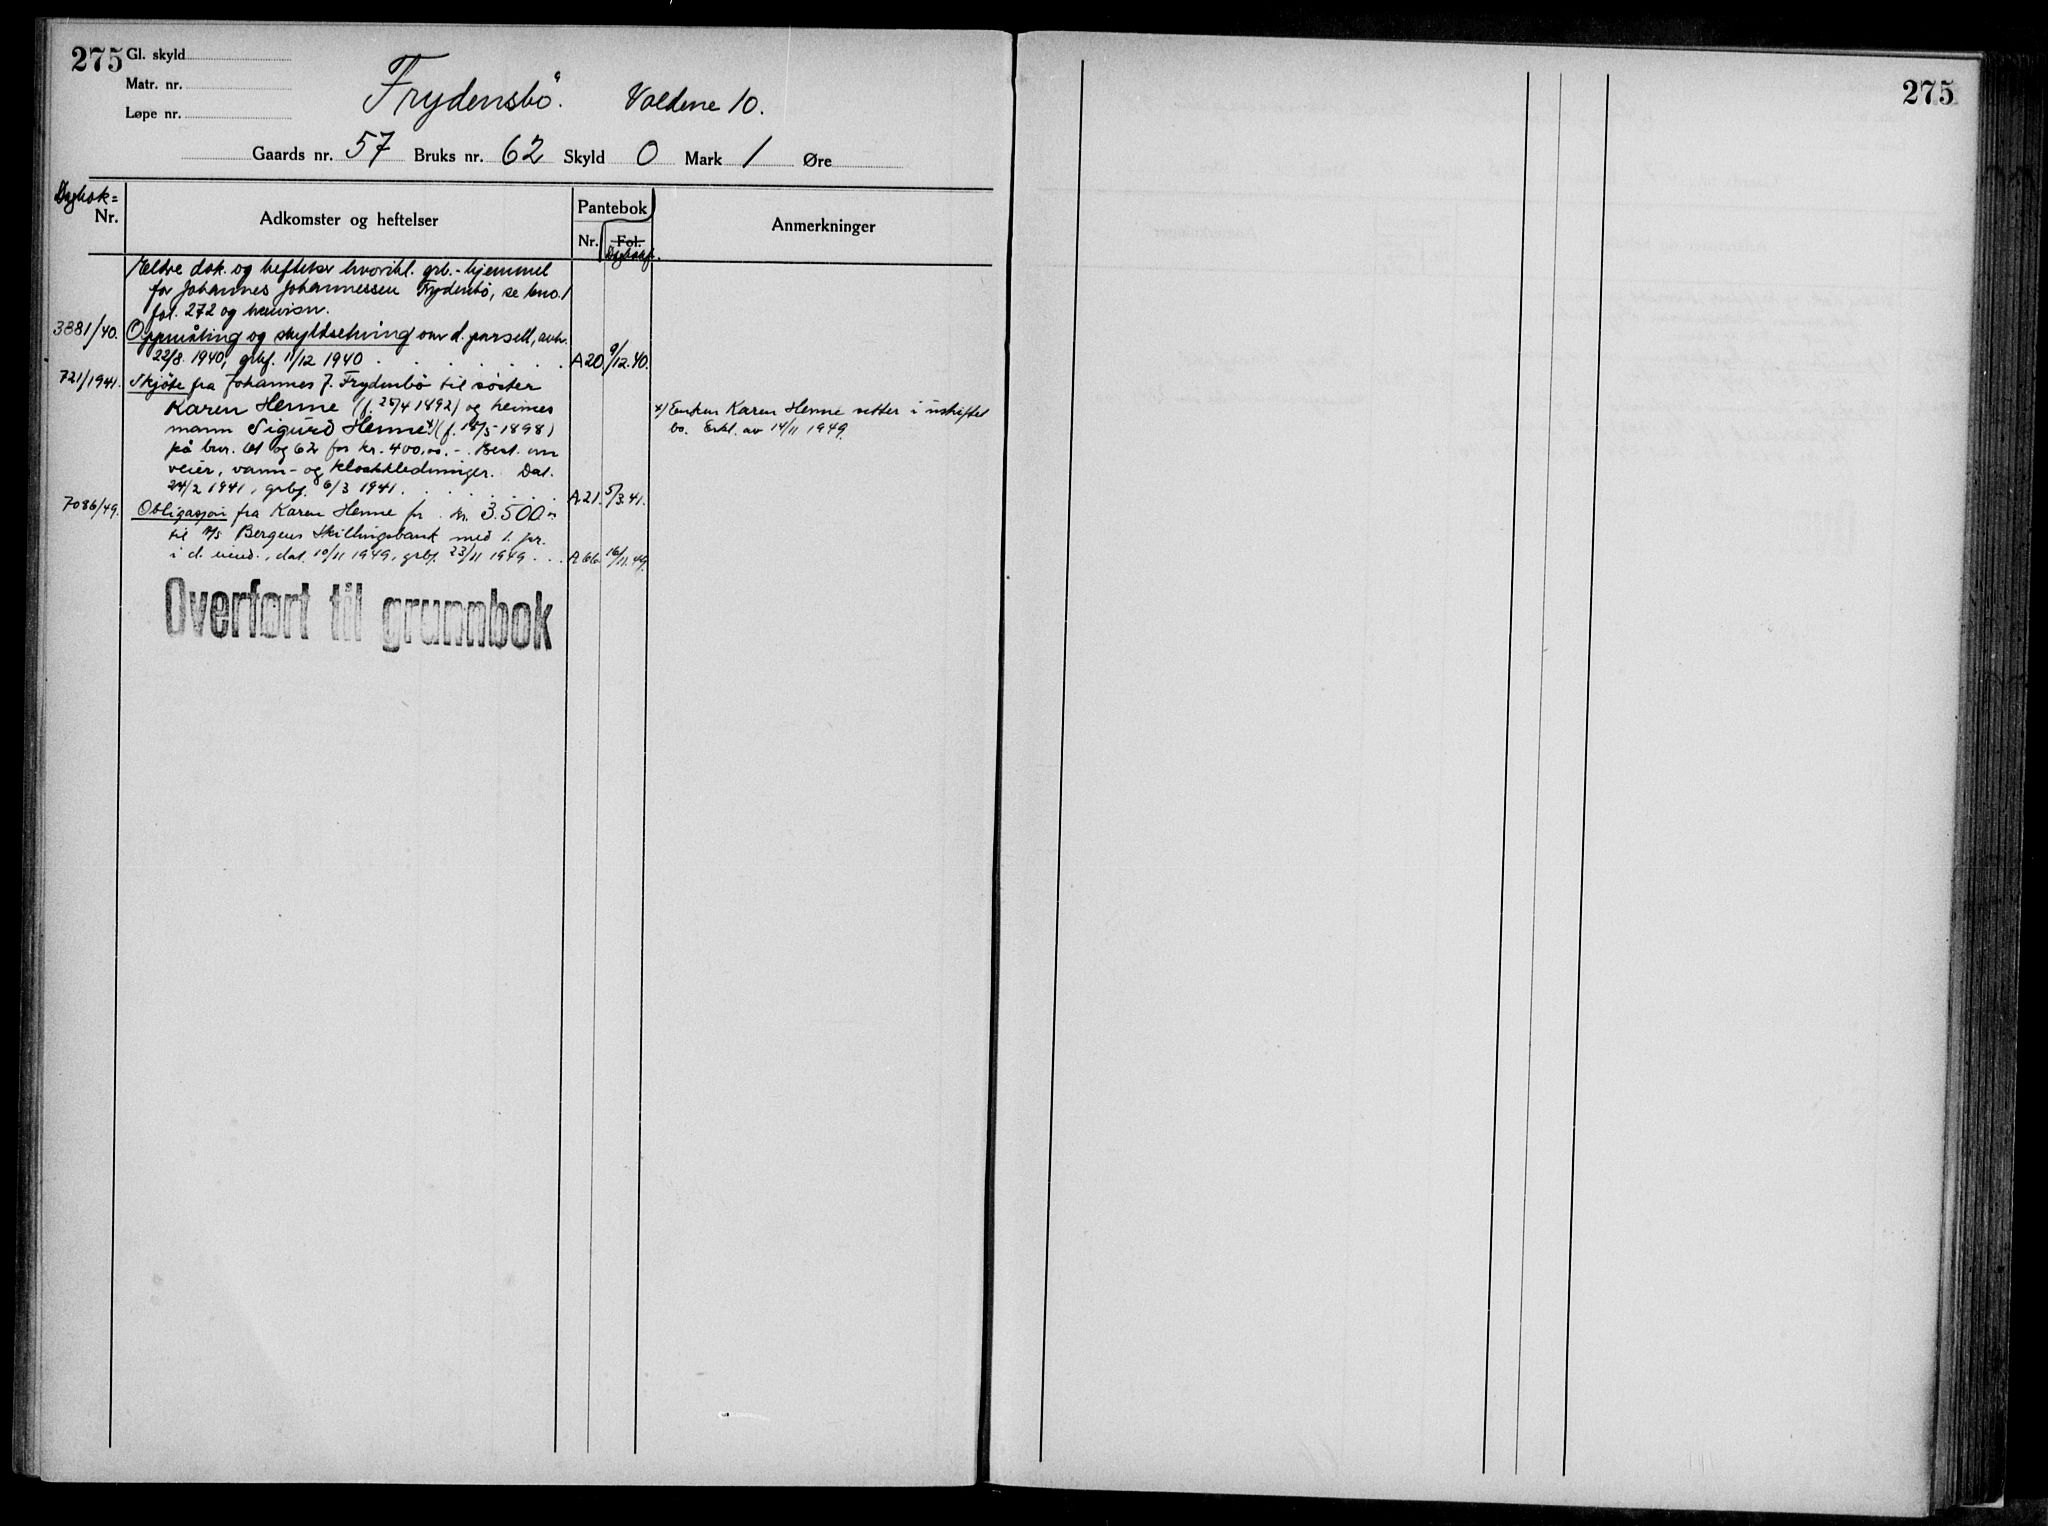 275
Gl. skyld
Matr. nr.
Løpe nr.
Frydensbö. Valdene 10.
Gaards nr. 57 Bruks nr. 62 Skyld 0 Mark 1 Øre
275
Dagbok=
Nr.
Adkomster og heftelser
Pantebok
Nr. Fol.
Dagbokf.
Anmerkninger
Ældre dok. og heftelser hvoribl. grb.-hjemmel
for Johannes Johannessen Frydenbö, se bno. 1
fol. 272 og henvisn.
3881/40. Oppmåling og skyldsetning over d. parsell, avh.
22/8 1940, grbf. 11/12 1940 . . . . . A20 9/12.40.
721/1941. Skjöte fra Johannes J. Frydenbö til søster
Karen Henne (f. 25/4 1892) og hennes
mann Sigurd Henne x) (f. 18/5 1898)
på bnr. 61 og 62 for kr. 400,00. - Best. om
veier, vann- og kloakkledninger. Dat.
24/2 1941, grbf. 6/3 1941. . . . . . A21. 5/3.41.
x) Enken Karen Henne sitter i uskiftet
bo. Erkl. av 14/11 1949.
7086/49. Obligasjon fra Karen Henne for kr. 3.500.-
til A/S Bergens Skillingsbank med 1. pr.
i d. eiend., dat. 10/11 1949, grbf. 23/11 1949 . . . A66 16/11.49.
Overført til grunnbok